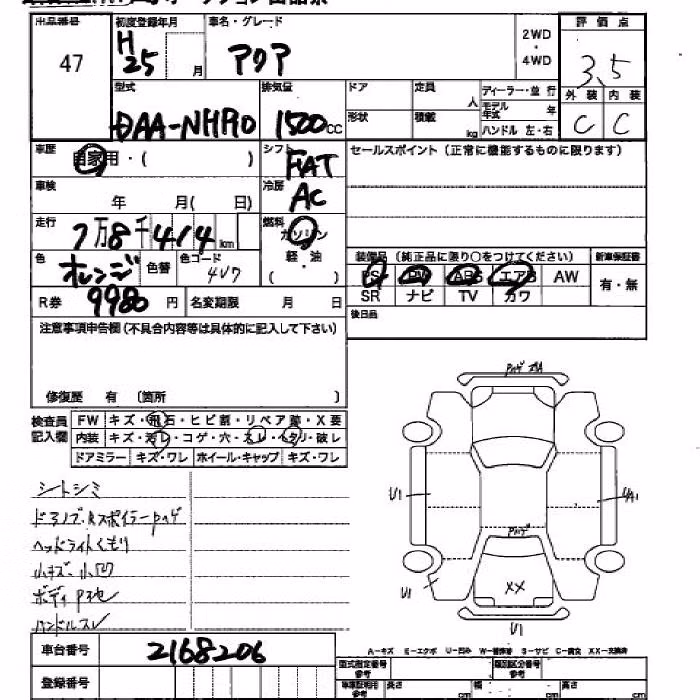 出品番号 初度登録年月 車名・グレード 2WD・4WD 評価点
47 H25 月 アクア 3.5
外装 内装
C C
型式 排気量 ドア 定員 人 ディーラー・並行
DAA-NHP10 1500cc 形状 積載 kg モデル年式 年
ハンドル 左・右
車歴 自家用・( ) シフト FAT セールスポイント(正常に機能するものに限ります)
車検 年 月( 日) 冷房 AC
走行 7万8千414km 燃料 ガソリン
軽・油
( )
色 オレンジ 色替 色コード 4V7
装備品(純正品に限り○をつけてください) 新車保証書
PS PW ABS エアB AW 有・無
SR ナビ TV カワ
R券 9980円 名変期限 月 日
後日品
注意事項申告欄(不具合内容等は具体的に記入して下さい)
修復歴 有 (箇所 )
検査員記入欄
FW キズ・飛石・ヒビ割・リペア跡・X要
内装 キズ・汚レ・コゲ・穴・スレ・ヘタリ・破レ
ドアミラー キズ・ワレ ホイール・キャップ キズ・ワレ
シートシミ
ドアノブ・Rスポイラーpハゲ
ヘッドライトくもり
小キズ・小凹
ボディP地
ハンドルスレ
Pハゲ
U1
Pハゲ
U1
XX
U1
A-キズ E-エクボ U-凹み W-補修跡 S-サビ C-腐食 XX-交換済
車台番号 2168206
登録番号
型式指定番号 参考 類別区分番号 参考
車庫証明用 参考 長さ cm 幅 cm 高さ cm